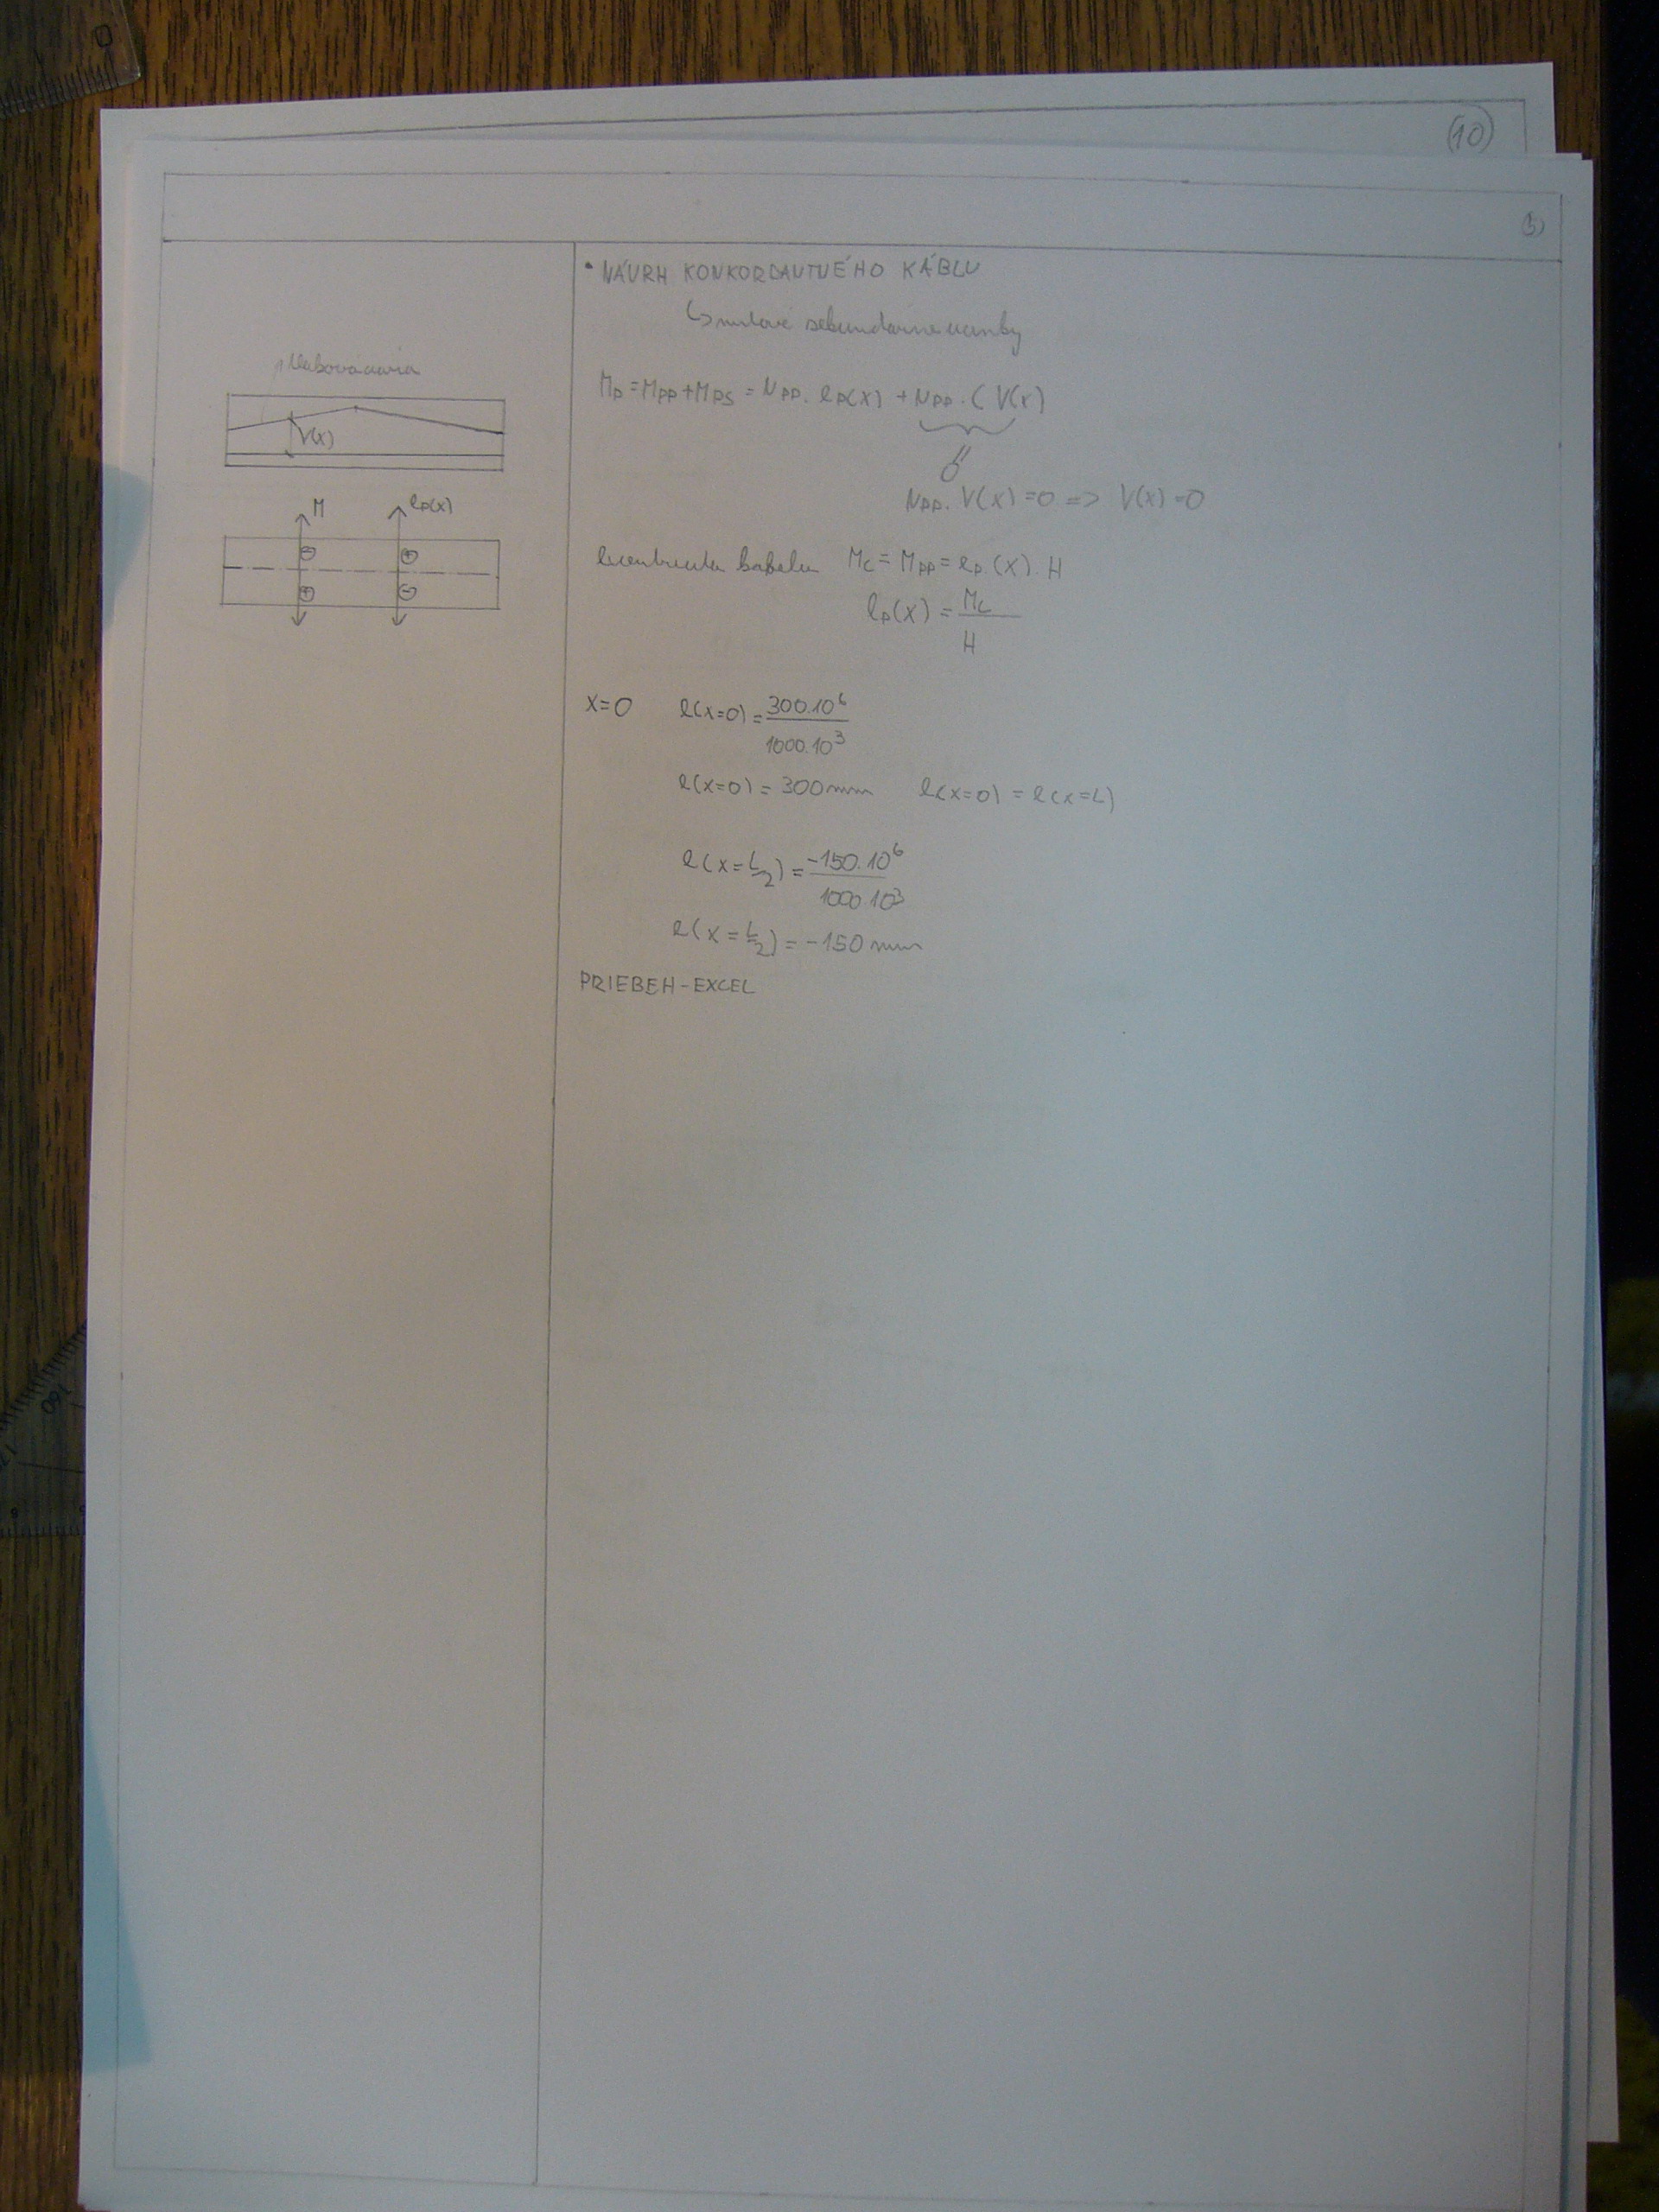 (10)
• NÁVRH KONKORDANTNÉHO KÁBLU
↳ nulové sekundárne
V(x)
M
eP(x)
MP = MPP + MPS = NPP. eP(x) + NPP. ( V(x)
0
NPP. V(x) = 0 => V(x) = 0
MC = MPP = eP.(x). H
eP(x) = MC / H
x=0 e(x=0) = 300.10⁶ / 1000.10³
e(x=0) = 300mm e(x=0) = e(x=L)
e(x=L/2) = -150.10⁶ / 1000.10³
e(x=L/2) = -150 mm
PRIEBEH-EXCEL